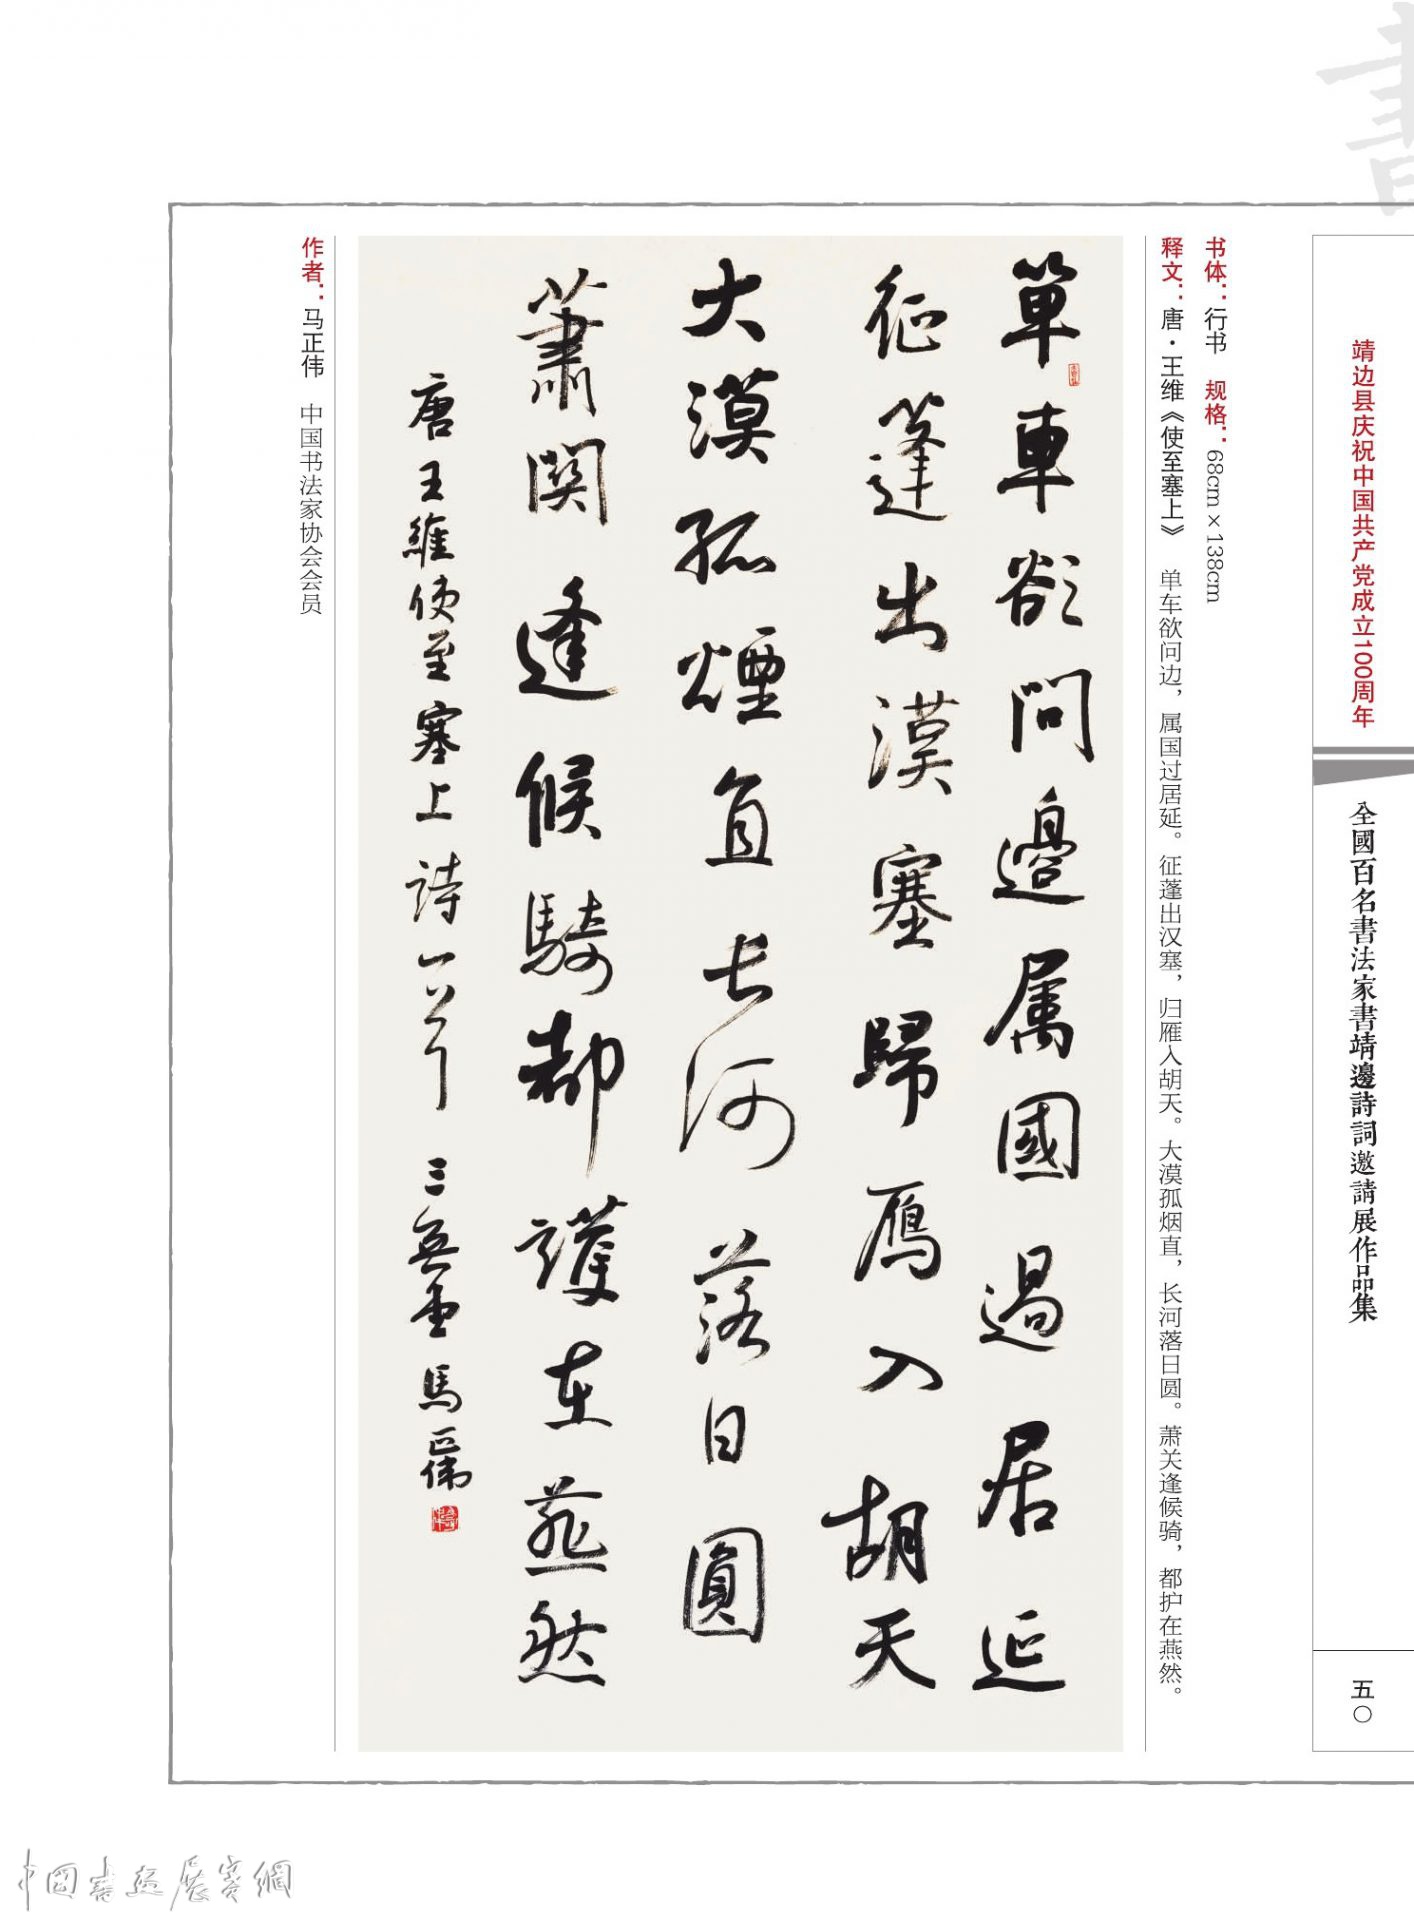 書
靖边县庆祝中国共产党成立100周年
全國百名書法家書靖邊詩詞邀請展作品集
五〇
书体：行书 规格：68cm×138cm
释文：唐·王维《使至塞上》 单车欲问边，属国过居延。征蓬出汉塞，归雁入胡天。大漠孤烟直，长河落日圆。萧关逢候骑，都护在燕然。
單車欲問邊属國過居延
征篷出漠塞歸鴈入胡天
大漠孤煙直長河落日圓
蕭関逢候騎都護在燕然
唐王維使至塞上詩一首 三無堂馬正偉
作者：马正伟 中国书法家协会会员
中國書画展賽網